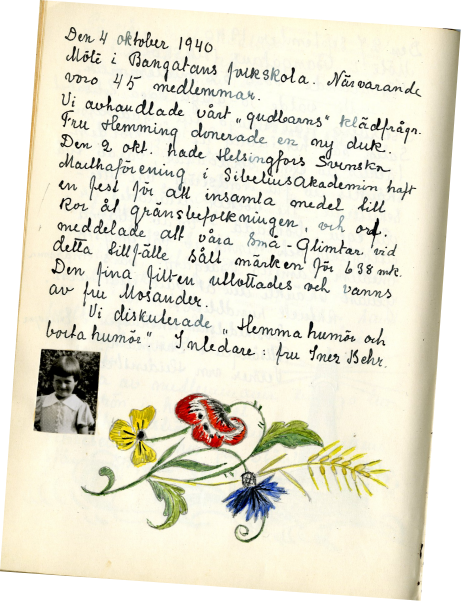 Den 4 oktober 1940
Möte i Bangatans folkskola. Närvarande
voro 45 medlemmar.
Vi avhandlade vårt „gudbarns" klädfrågn.
Fru Hemming donerade en ny duk.
Den 2 okt. hade Helsingfors Svenska
Marthaförening i Sibelius Akademin haft
en fest för att insamla medel till
skor åt gränsbefolkningen, och ordf.
meddelade att våra Små-Glimtar vid
detta tillfälle sålt märken för 638 mk.
Den fina filten utlottades och vanns
av fru Mosander.
Vi diskuterade „Hemma humör och
borta humör". Inledare: fru Inez Behr.